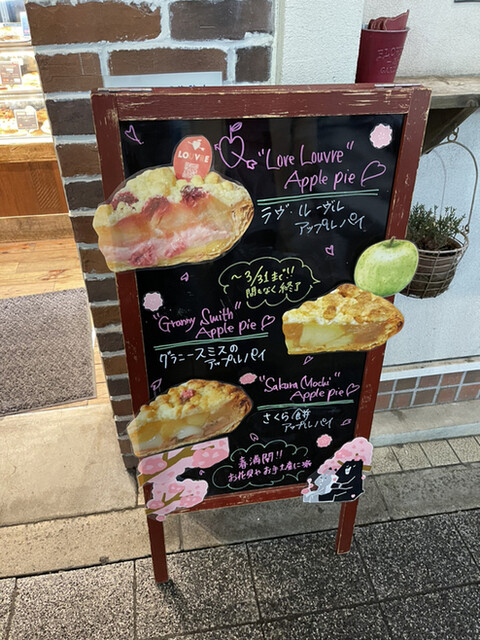 LOUVRE
"Love Louvre"
Apple pie
ラヴ・ルーヴル
アップルパイ
～3/31まで!!
間もなく終了
"Granny Smith"
Apple pie
グラニースミスの
アップルパイ
"Sakura Mochi"
Apple pie
さくら餅
アップルパイ
春満開!!
お花見やお手土産に